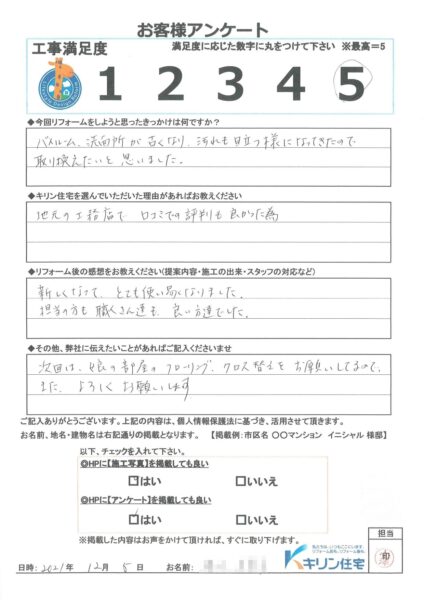 お客様アンケート
工事満足度
満足度に応じた数字に丸をつけて下さい ※最高=5
1 2 3 4 5
◆今回リフォームをしようと思ったきっかけは何ですか？
バスルーム、洗面所が古くなり、汚れも目立つ様になってきたので
取り換えたいと思いました。
◆キリン住宅を選んでいただいた理由があればお教えください
地元の工務店で 口コミでの評判も良かった為
◆リフォーム後の感想をお教えください(提案内容・施工の出来・スタッフの対応など)
新しくなって、とても使い易くなりました。
担当の方も職人さん達も良い方達でした。
◆その他、弊社に伝えたいことがあればご記入くださいませ
次回は、娘の部屋のフローリング、クロス替えをお願いしてるので、
また、よろしくお願いします
ご記入ありがとうございます。上記の内容は、個人情報保護法に基づき、活用させて頂きます。
お名前、地名・建物名は右記通りの掲載となります。 【掲載例:市区名 〇〇マンション イニシャル 様邸】
以下、チェックを入れて下さい。
◎HPに【施工写真】を掲載しても良い
□はい □いいえ
◎HPに【アンケート】を掲載しても良い
□はい □いいえ
※掲載した内容はお声をかけて頂ければ、すぐに取り下げます。
担当
印
私たちは、いつもここにいます。
キリン住宅
日時: 2021年 12月 5日 お名前: